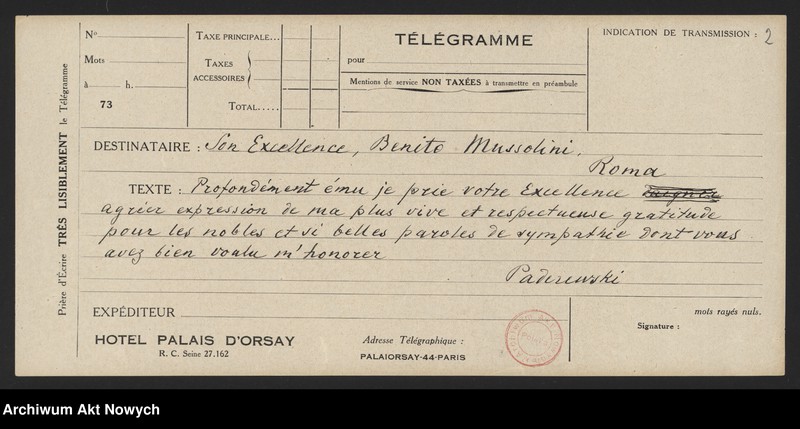 Prière d'Écrire TRÈS LISIBLEMENT le Télégramme
No
Mots
à h.
73
TAXE PRINCIPALE...
TAXES ACCESSOIRES
TOTAL.....
TÉLÉGRAMME
pour
Mentions de service NON TAXÉES à transmettre en préambule
INDICATION DE TRANSMISSION : 2
DESTINATAIRE : Son Excellence, Benito Mussolini.
Roma
TEXTE : Profondément ému je prie votre Excellence
agréer expression de ma plus vive et respectueuse gratitude
pour les nobles et si belles paroles de sympathie dont vous
avez bien voulu m'honorer
Paderewski
EXPÉDITEUR
HOTEL PALAIS D'ORSAY
R. C. Seine 27.162
Adresse Télégraphique :
PALAIORSAY-44-PARIS
mots rayés nuls.
Signature :
Archiwum Akt Nowych